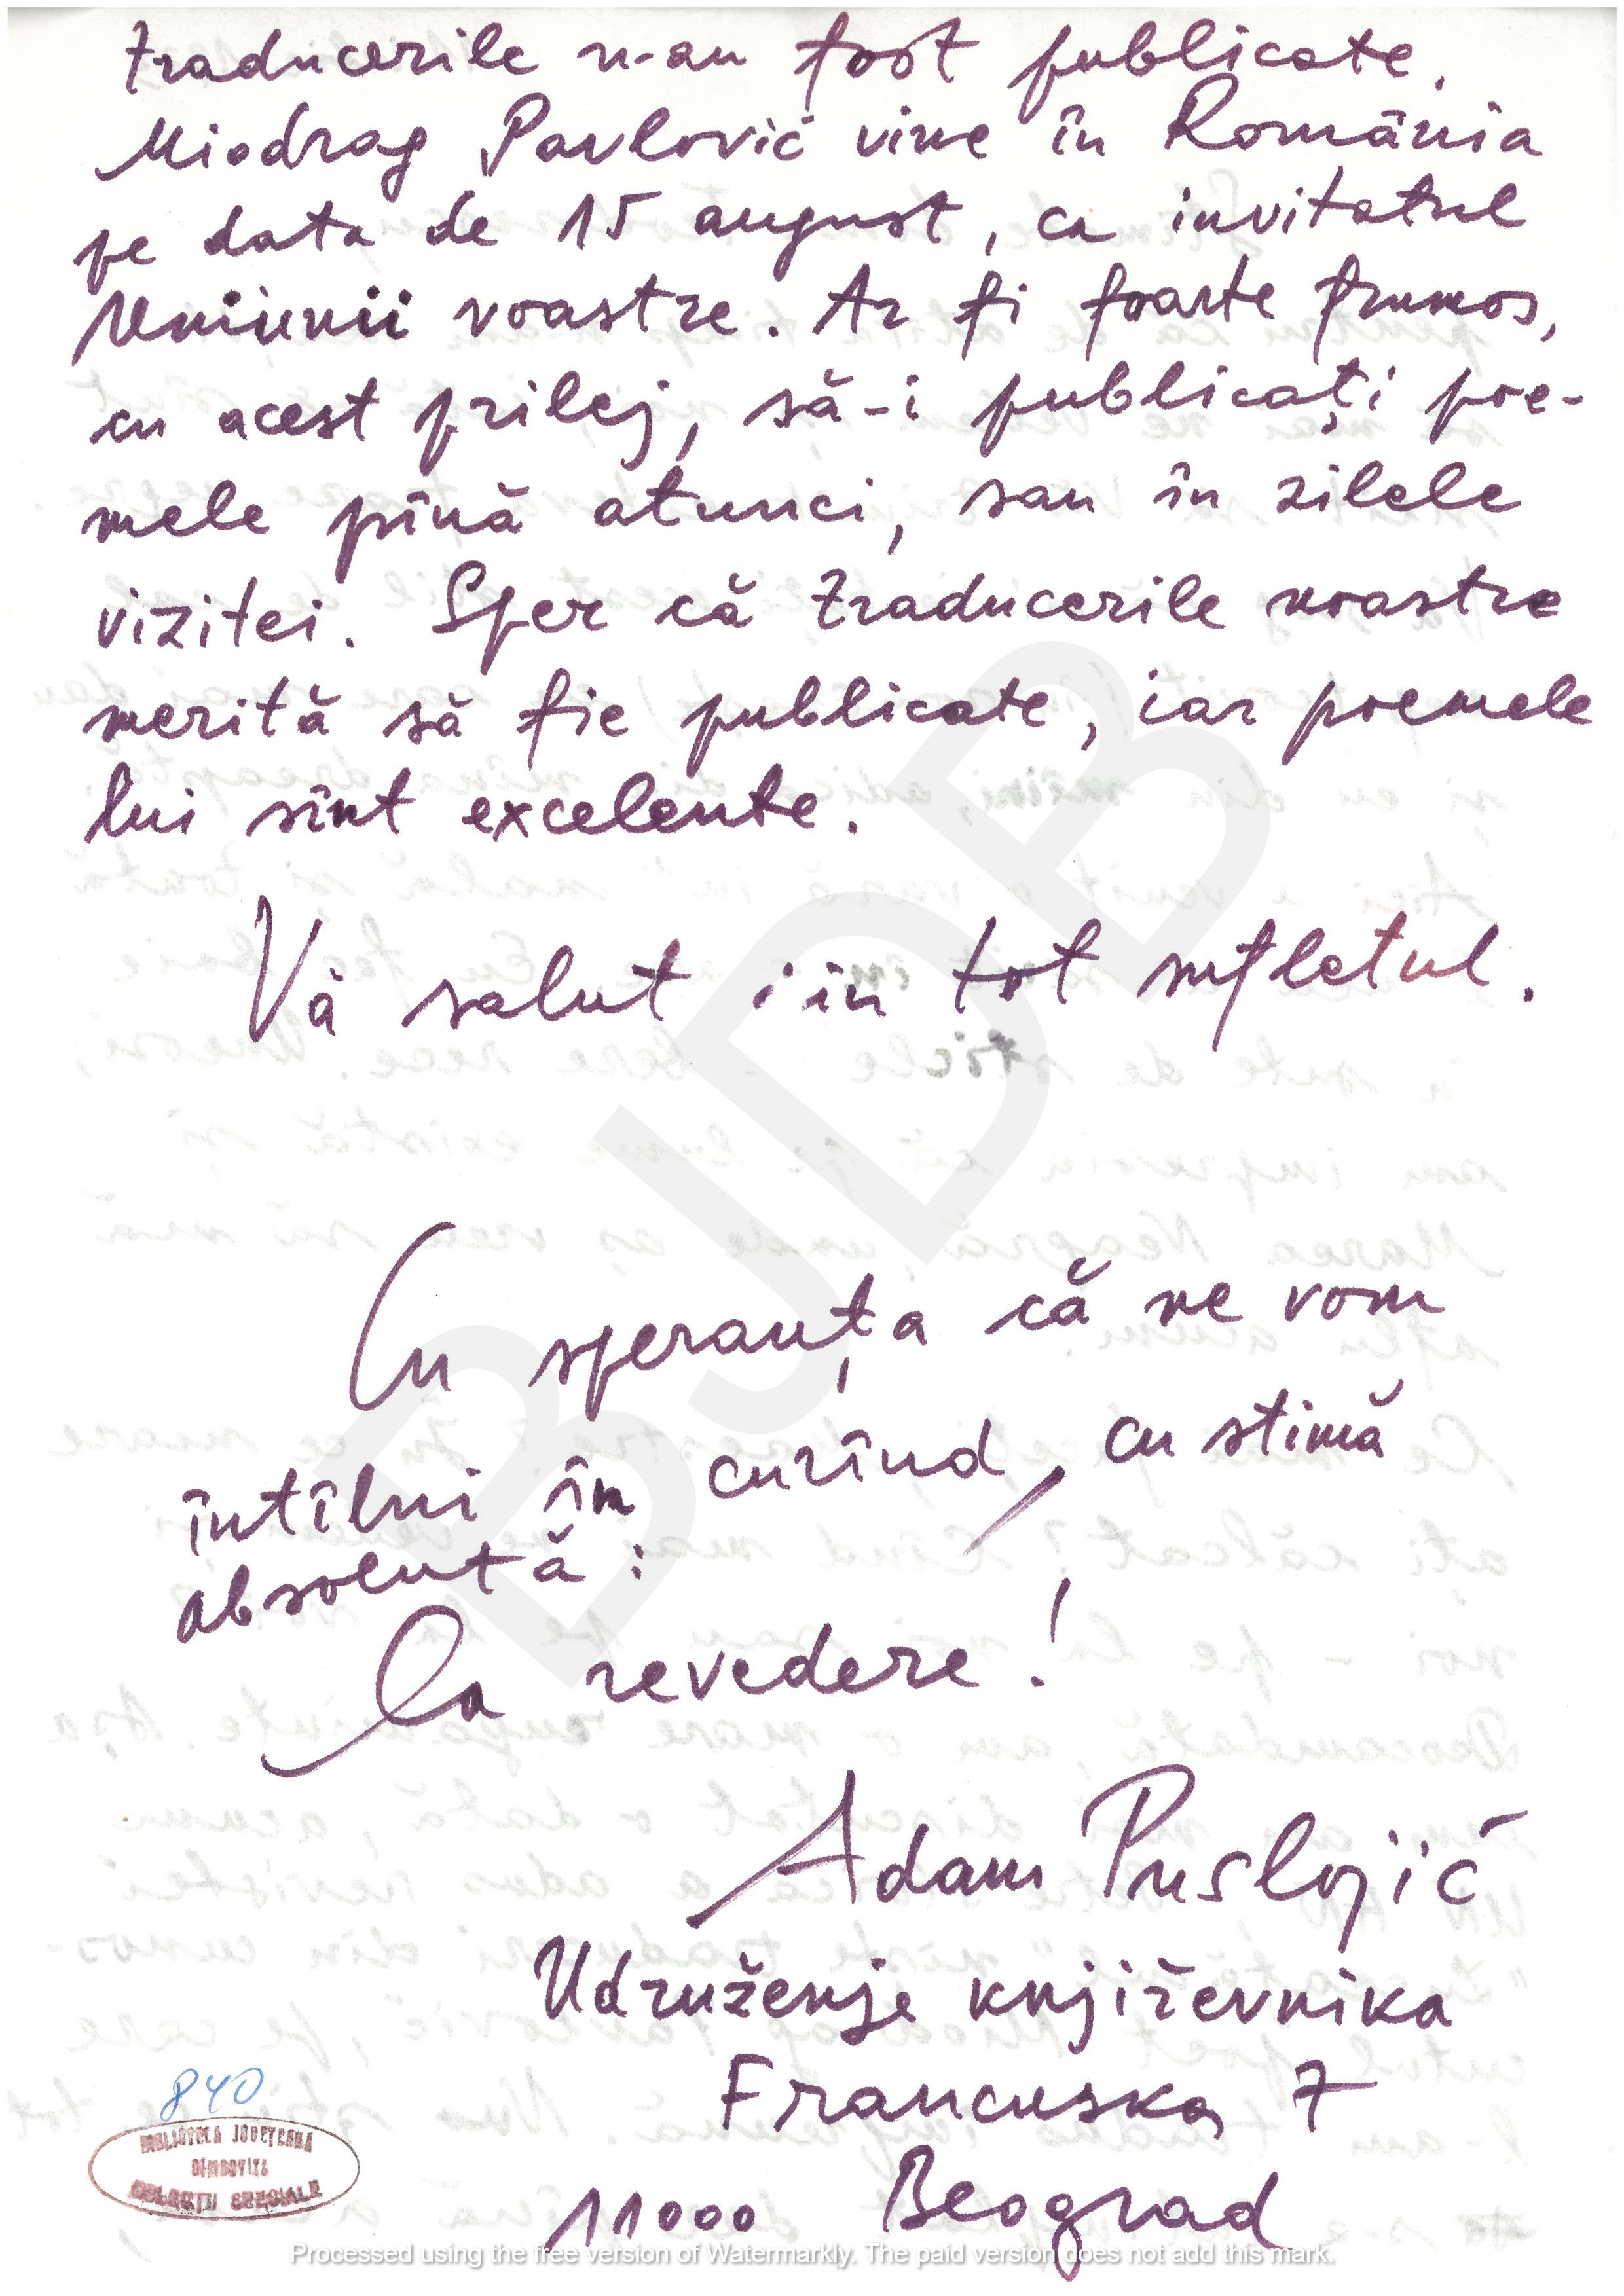 traducerile n-au fost publicate.
Miodrag Pavlović vine în România
pe data de 15 august, ca invitatul
Uniunii voastre. Ar fi foarte frumos,
cu acest prilej, să-i publicați poe-
mele pînă atunci, sau în zilele
vizitei. Sper că traducerile noastre
merită să fie publicate, iar poemele
lui sînt excelente.
Vă salut din tot sufletul.
Cu speranța că ne vom
întîlni în curînd, cu stimă
absolută:
La revedere!
Adam Puslojić
Udruženje književnika
Francuska 7
11000 Beograd
840
BIBLIOTECA JUDEȚEANĂ
DÎMBOVIȚA
COLECȚII SPECIALE
BJDB
Processed using the free version of Watermarkly. The paid version does not add this mark.